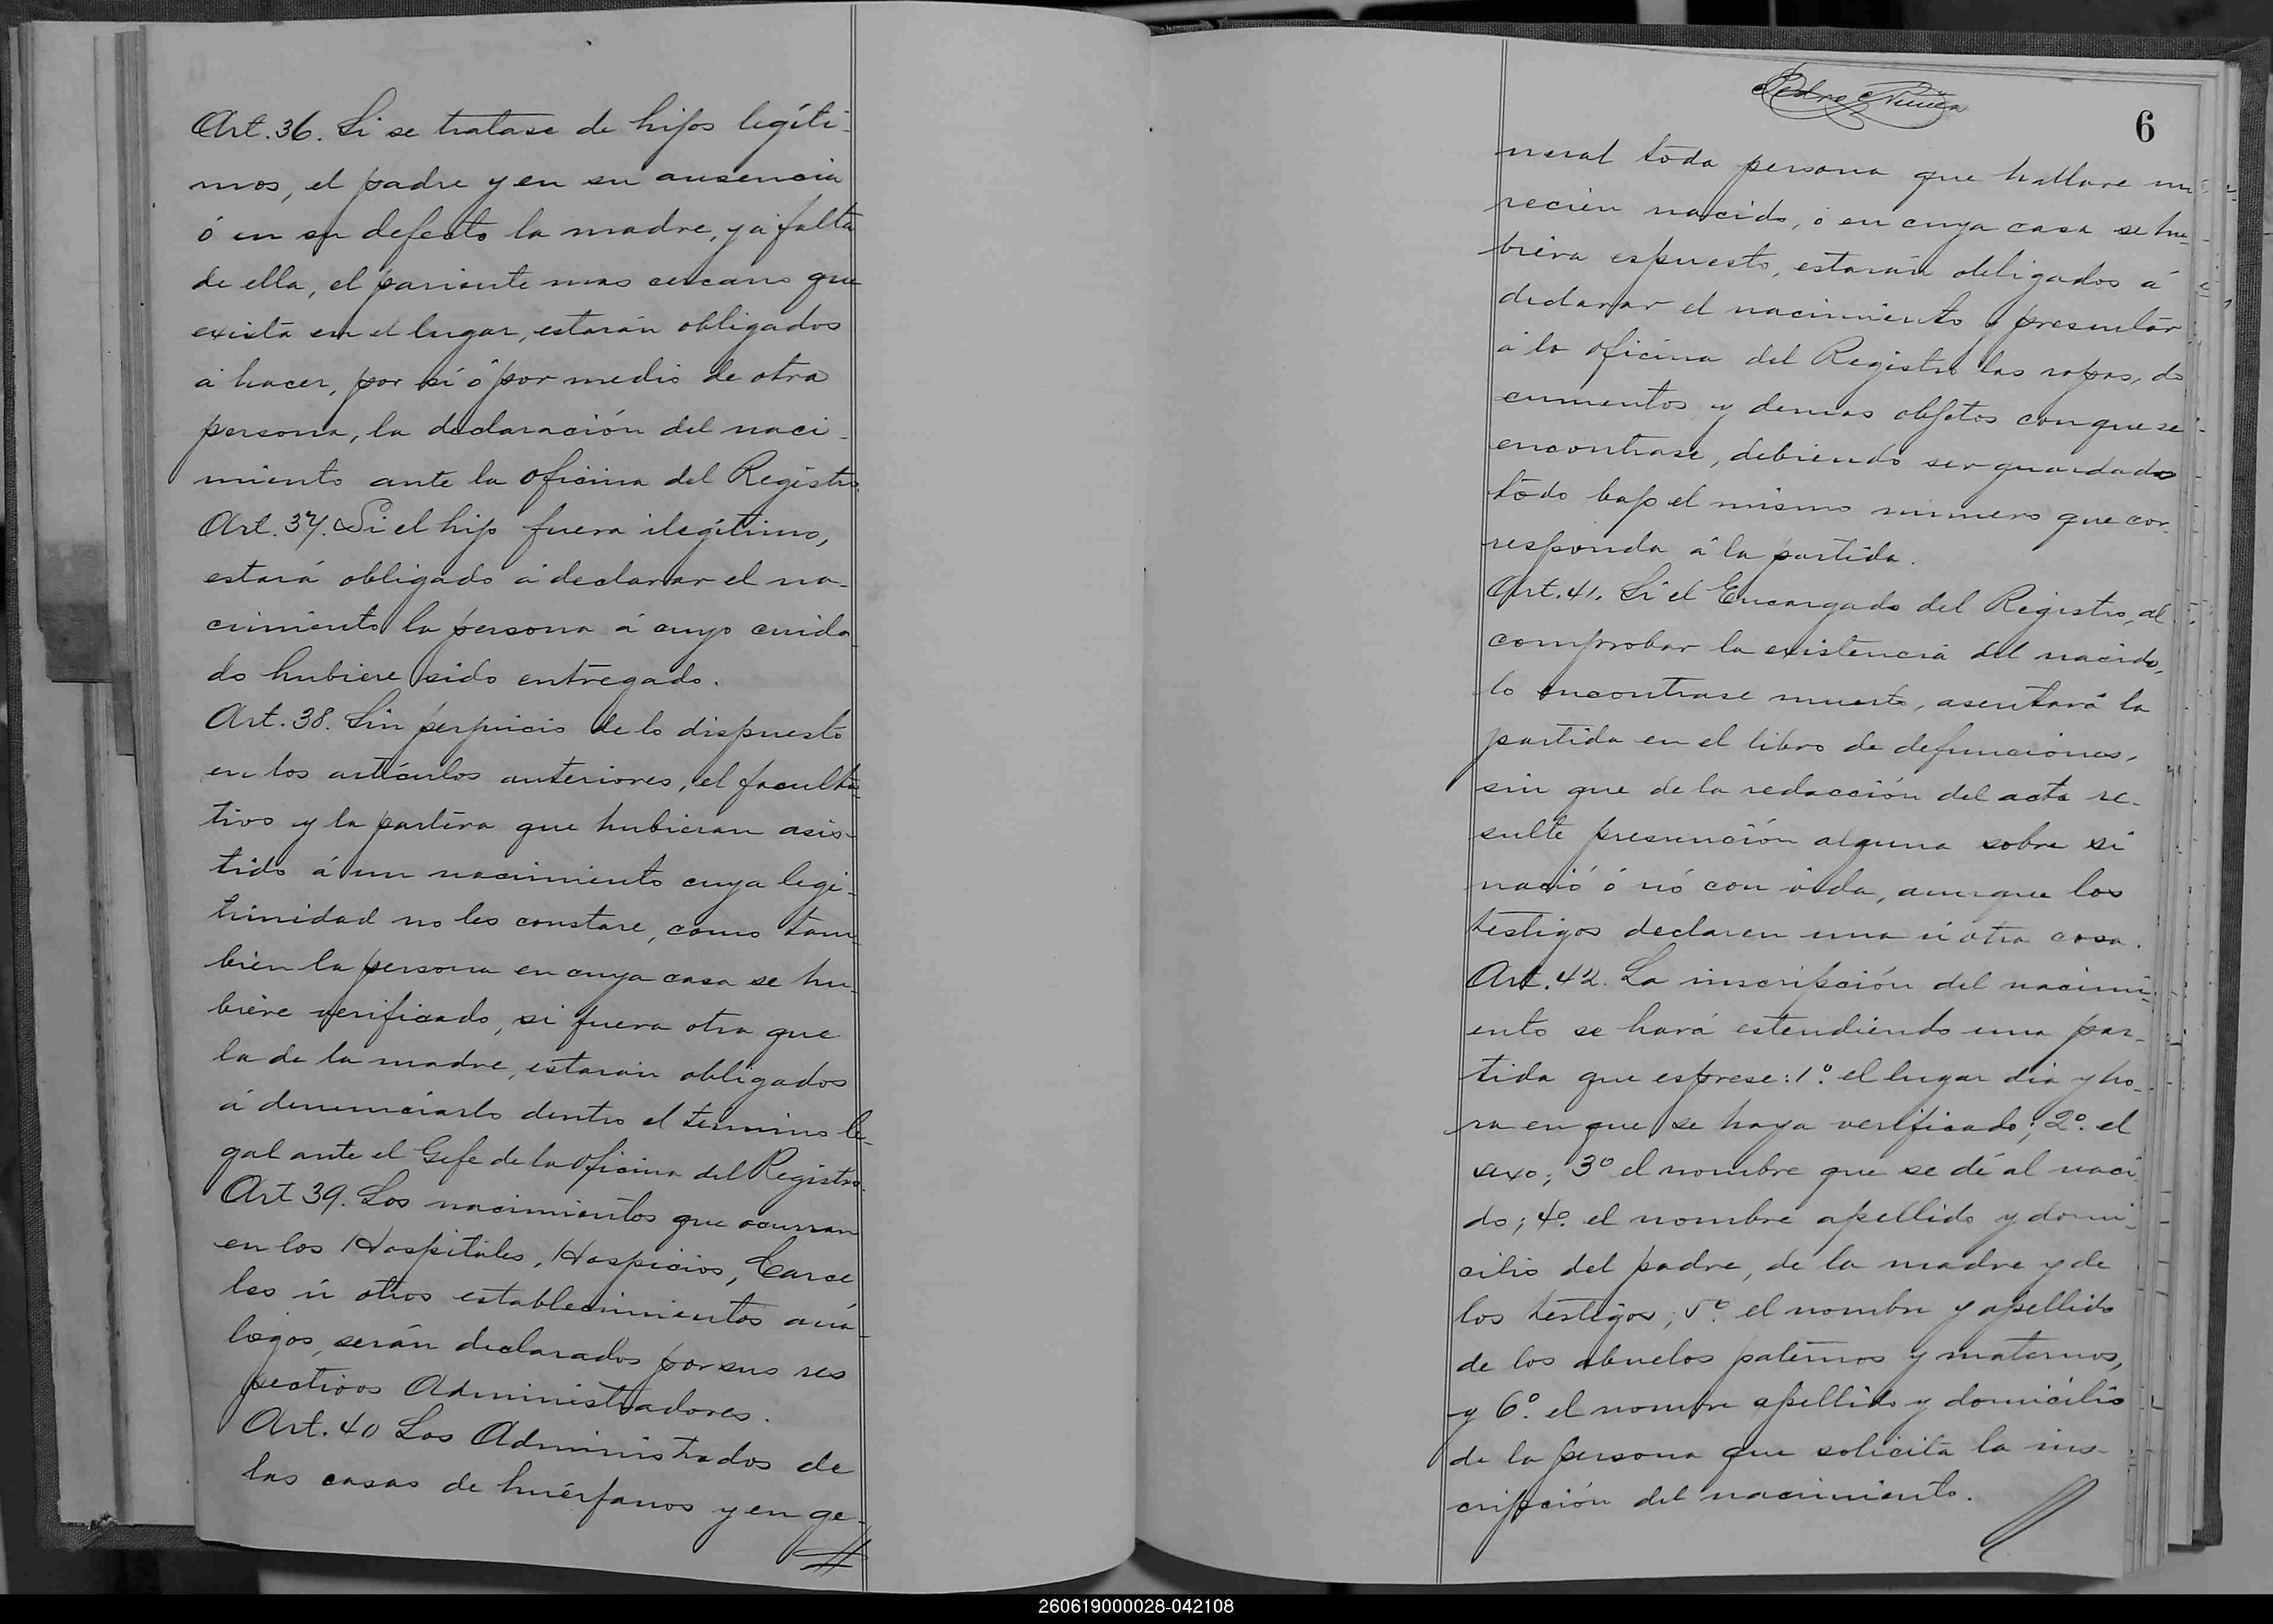 Art. 36. Si se tratase de hijos legíti-
mos, el padre y en su ausencia
ó en su defecto la madre, y á falta
de ella, el pariente mas cercano que
exista en el lugar, estarán obligados
á hacer, por sí ó por medio de otra
persona, la declaración del naci-
miento ante la oficina del Registro.
Art. 37. Si el hijo fuera ilegítimo,
estará obligado á declarar el na-
cimiento la persona á cuyo cuida
do hubiere sido entregado.
Art. 38. Sin perjuicio de lo dispuesto
en los artículos anteriores, el faculta-
tivo y la partera que hubieran asis-
tido á un nacimiento cuya legi-
timidad no les constare, como tam
bien la persona en cuya casa se hu-
biere verificado, si fuera otra que
la de la madre, estarán obligados
á denunciarlo dentro el termino le-
gal ante el Gefe de la oficina del Registro.
Art 39. Los nacimientos que ocurran
en los Hospitales, Hospicios, Carce
les ú otros establecimientos aná-
logos, serán declarados por sus res
pectivos Administradores.
Art. 40 Los Administrados de
las casas de huérfanos y en ge-
Pedro Nuñez
6
neral toda persona que hallare un
recien nacido, ó en cuya casa se hu-
biera espuesto, estarán obligados á
declarar el nacimiento y presentar
á la oficina del Registro las ropas, do
cumentos y demas objetos con que se
encontrase, debiendo ser guardados
todo bajo el mismo numero que cor-
responda á la partida.
Art. 41. Si el Encargado del Registro, al
comprobar la existencia del nacido,
lo encontrase muerto, asentará la
partida en el libro de defunciones,
sin que de la redacción del acta re-
sulte presunción alguna sobre si
nació ó nó con vida, aunque los
testigos declaren una ú otra cosa.
Art. 42. La inscripción del nacimi-
ento se hará estendiendo una par-
tida que esprese: 1º. el lugar dia y ho-
ra en que se haya verificado; 2º. el
sexo; 3º el nombre que se dé al naci
do; 4º. el nombre apellido y domi-
cilio del padre, de la madre y de
los testigos; 5º. el nombre y apellido
de los abuelos paternos y maternos,
y 6º. el nombre apellido y domicilio
de la persona que solicita la ins-
cripción del nacimiento.
260619000028-042108